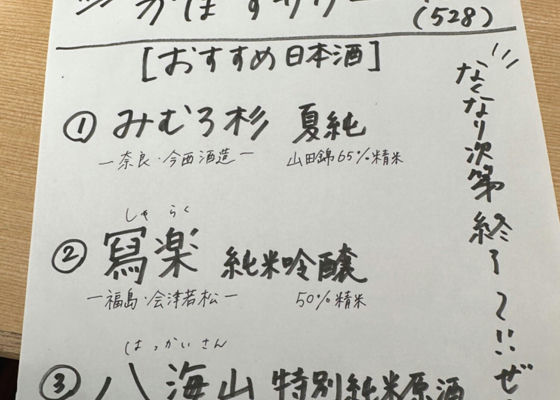 かぼすサワー
(528)
[おすすめ日本酒]
① みむろ杉 夏純
ー奈良・今西酒造ー 山田錦65%精米
しゃ らく
② 寫楽 純米吟醸
ー福島・会津若松ー 50%精米
はっかいさん
③ 八海山 特別純米原酒
なくなり次第終了〜!!ぜ